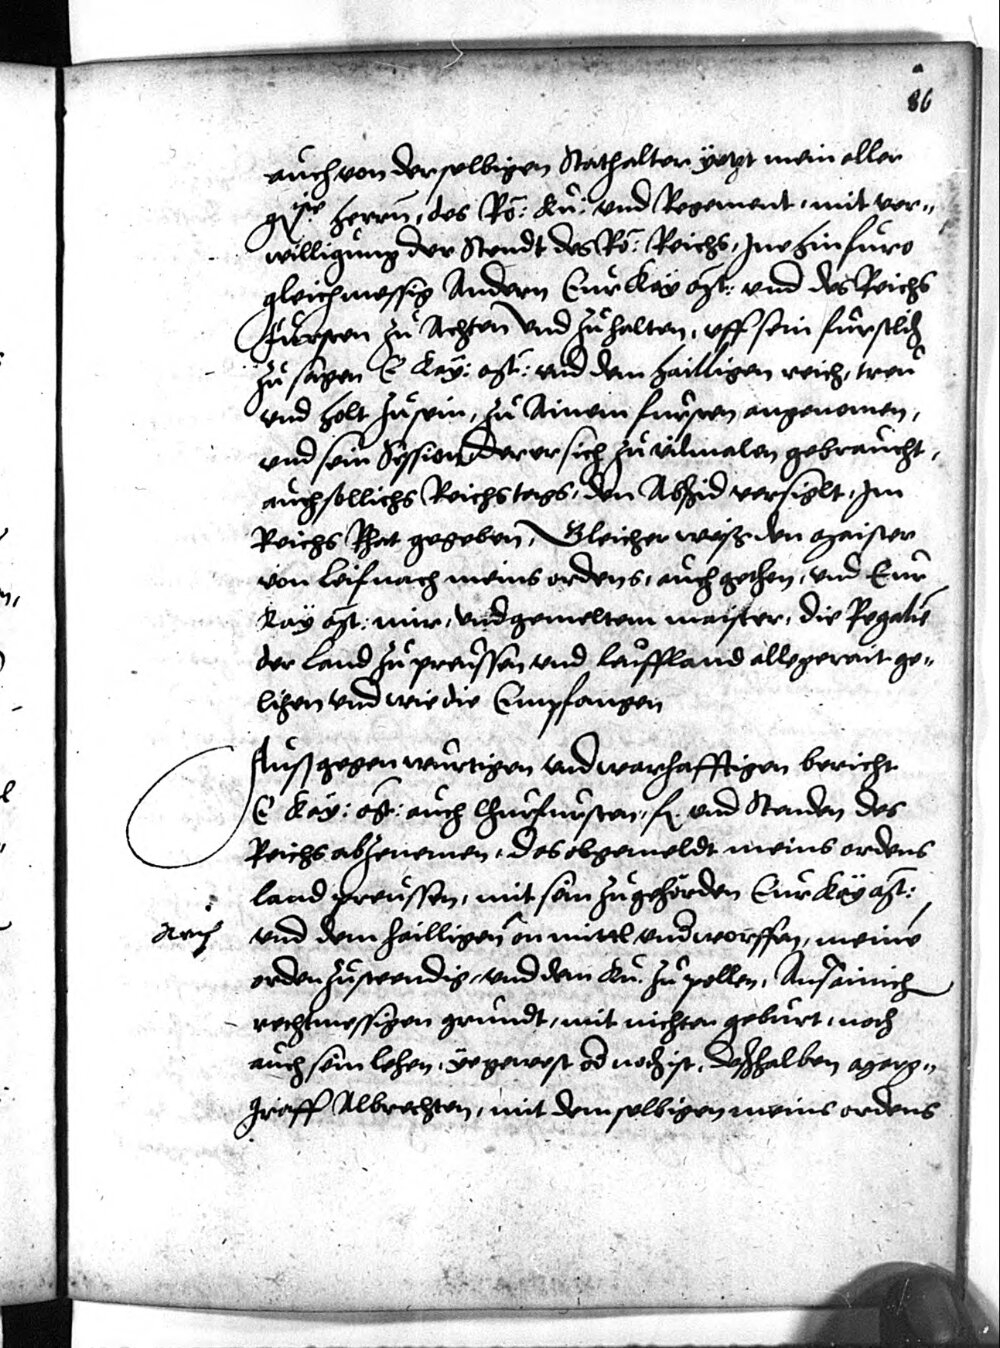 86
auch von der selbigen Stathalter yetzt mein aller
g herrn, des Rö: Kü: und Regement, mit ver„
willigung der Stendt des Rö: Reichs, Inn hinfuro
gleichmessig Andern Eur Kay Mt: und des Reichs
Fürsten zu Achten und zu halten, uff sein fürstlich
zu sagen E Kay: Mt: und dem hailligen reich, treu
und holt zu sein, zu Ainem fürsten angenomen,
und sein Session der er sich zu vilmalen gebraucht,
auch sollichs Reichstags, den Abschid versiglt, Im
Reichs Rhat gegeben, Gleicher weiß den maister
von Leifnach meins ordens, auch gethon, und Eur
Kay Mt: mir, und gemeltem maister, die Regalie
der land zu preussen und leuffland allegerait ge„
lihen und wir die Empfangen
Auß gegenwürtigen und warhafftigen bericht
E Kay: Mt: auch Churfursten, f. und Stenden des
Reichs abzenemen, das obgemeldt meins ordens
land preussen, mit sein zugehörden Eur Kay Mt:
Reich
und dem hailligen on mittl underworffen, meine
orden zustendig, und dem Kü. zu pollen, Auß ainich
rechtmessigen grundt, mit nichten geburt, noch
auch sein lehen, ye gewest od noch ist, deßhalben marg„
graff Albrechten, mit dem selbigen meins ordens